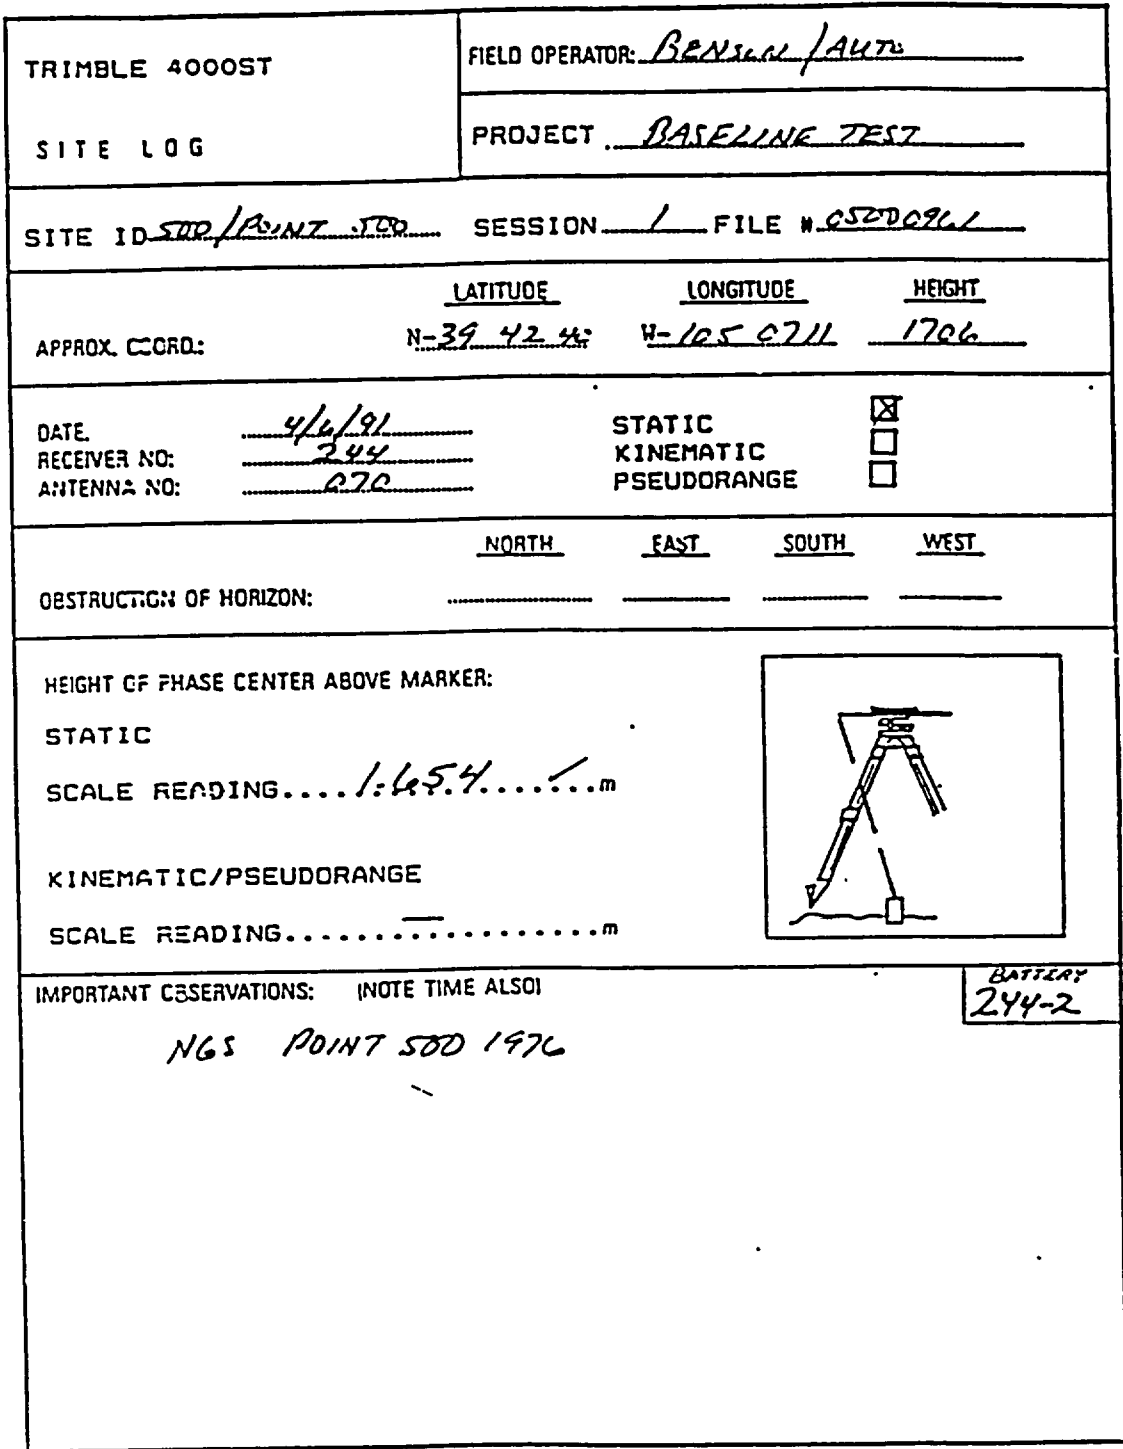 TRIMBLE 4000ST
SITE LOG
FIELD OPERATOR: BENSON / AUTO
PROJECT BASELINE TEST
SITE ID 500/POINT 500 SESSION 1 FILE # 05000961
LATITUDE LONGITUDE HEIGHT
APPROX. COORD.: N-39 42 40 W-105 0711 1706
DATE. 4/6/91
RECEIVER NO: 244
ANTENNA NO: 070
STATIC ☒
KINEMATIC ☐
PSEUDORANGE ☐
NORTH EAST SOUTH WEST
OBSTRUCTION OF HORIZON:
HEIGHT OF PHASE CENTER ABOVE MARKER:
STATIC
SCALE READING....1.654.....✓.m
KINEMATIC/PSEUDORANGE
SCALE READING.....—..............m
IMPORTANT OBSERVATIONS: (NOTE TIME ALSO)
BATTERY
244-2
NGS POINT 500 1976